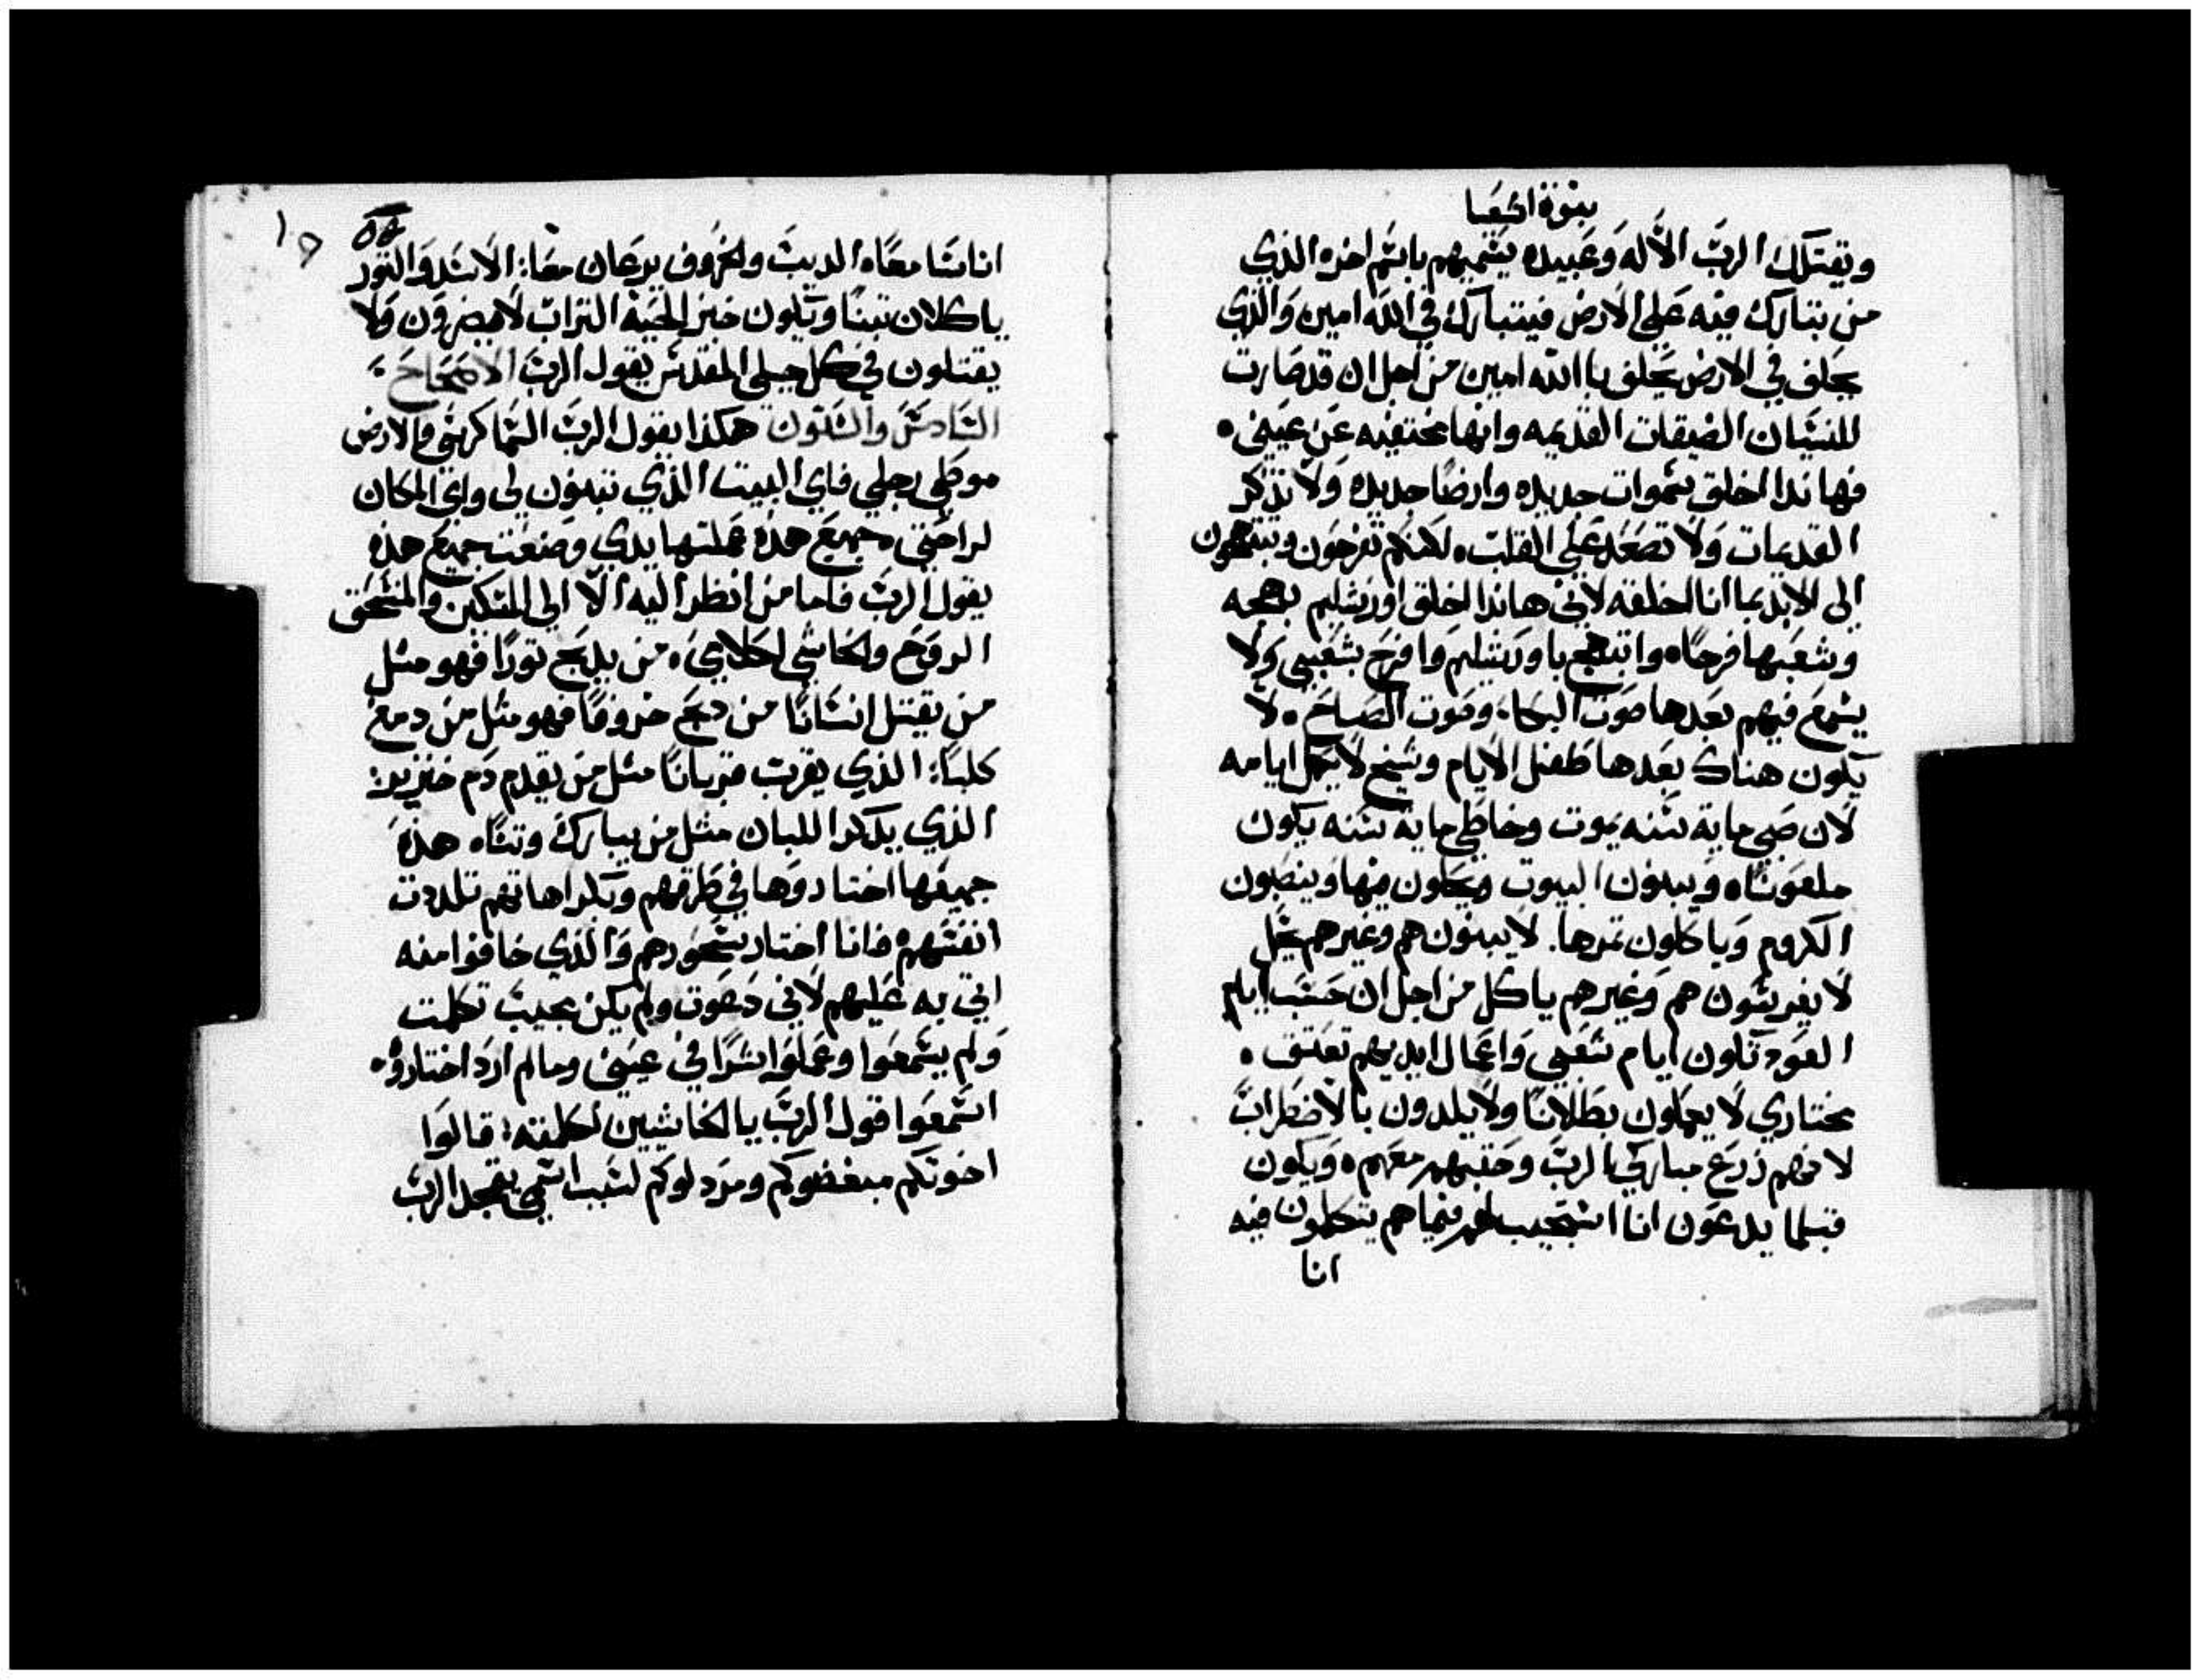 نبوة اشعيا
ويقتلك الرب الاله وعبيده يسميهم باسم اخره الذي
من يتبارك فيه على الارض فيتبارك في الله امين والذي
يحلف في الارض يحلف باالله امين من اجل ان قد صارت
للنسيان الضيقات القديمه وانها مختفيه عن عيني ٠
فهانذا اخلق سموات جديده وارضا جديده ولا تذكر
القديمات ولا تصعد على القلب ٠ لكنكم تفرحون وتبتهجون
الى الابد بما انا اخلقه لاني هانذا اخلق اورشليم بهجه
وشعبها فرحا ٠ وابتهج باورشليم وافرح بشعبي ولا
يسمع فيهم بعدها صوت البكا ٠ وصوت الصياح ٠ لا
يكون هناك بعدها طفل الايام وشيخ لا يكمل ايامه
لان صبي ماية سنه يموت وخاطي ماية سنه يكون
ملعونا ٠ ويبنون البيوت ويحلون فيها وينصبون
الكروم وياكلون ثمرها . لا يبنون هم وغيرهم يحل
لا يغرسون هم وغيرهم ياكل من اجل ان حسب ايام
العود تكون ايام شعبي واعمال ايديهم تعتق ٠
مختاري لا يعملون بطلانا ولا يلدون بالاضطراب
لانهم زرع مباركي الرب وحقبهم معهم ٠ ويكون
قبلما يدعون انا استجيب لهم فيما هم يتكلمون فيه
انا
٥٥
١٩
انا سا معا ٠ الديب والخروف يرعان معا : الاسد والثور
ياكلان تبنا ويكون خبز الحية التراب لا يضرون ولا
يقتلون في كل جبلي المقدس يقول الرب الاصحاح
السادس والستون هكذا يقول الرب السما كرسي والارض
موطى رجلي فاي البيت الذي تبنون لي واي المكان
لراحتي وجميع هذه عملتها يدي وصنعت جميع هذه
يقول الرب فاما من انظر اليه الا الى المسكين والمنسحق
الروح والخاشي لكلامي ٠ من يدبح ثورا فهو مثل
من يقتل انسانا من دبح خروفا فهو مثل من دمغ
كلبا : الذي يقرب قربانا مثل من يقدم دم خنزير :
الذي يدكر اللبان مثل من يبارك وثنا ٠ هذه
جميعها اختاروها في طرقهم وبكراهاتهم تلددت
انفسهم فانا اختار سخورهم والذي خافوا منه
اتي به عليهم لاني دعوت ولم يكن مجيب تكلمت
ولم يسمعوا وعملوا شرا في عيني وما لم ارد اختاروه ٠
اسمعوا قول الرب يا الخاشيين لكلمته : قالوا
اخوتكم مبغضوكم ومردلوكم لسبب اسمي يتمجد الرب